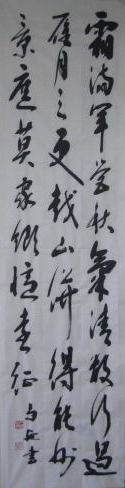 霜满军营秋氣清数行過
雁月三更越山併得能州
景遮莫家鄉憶遠征
書